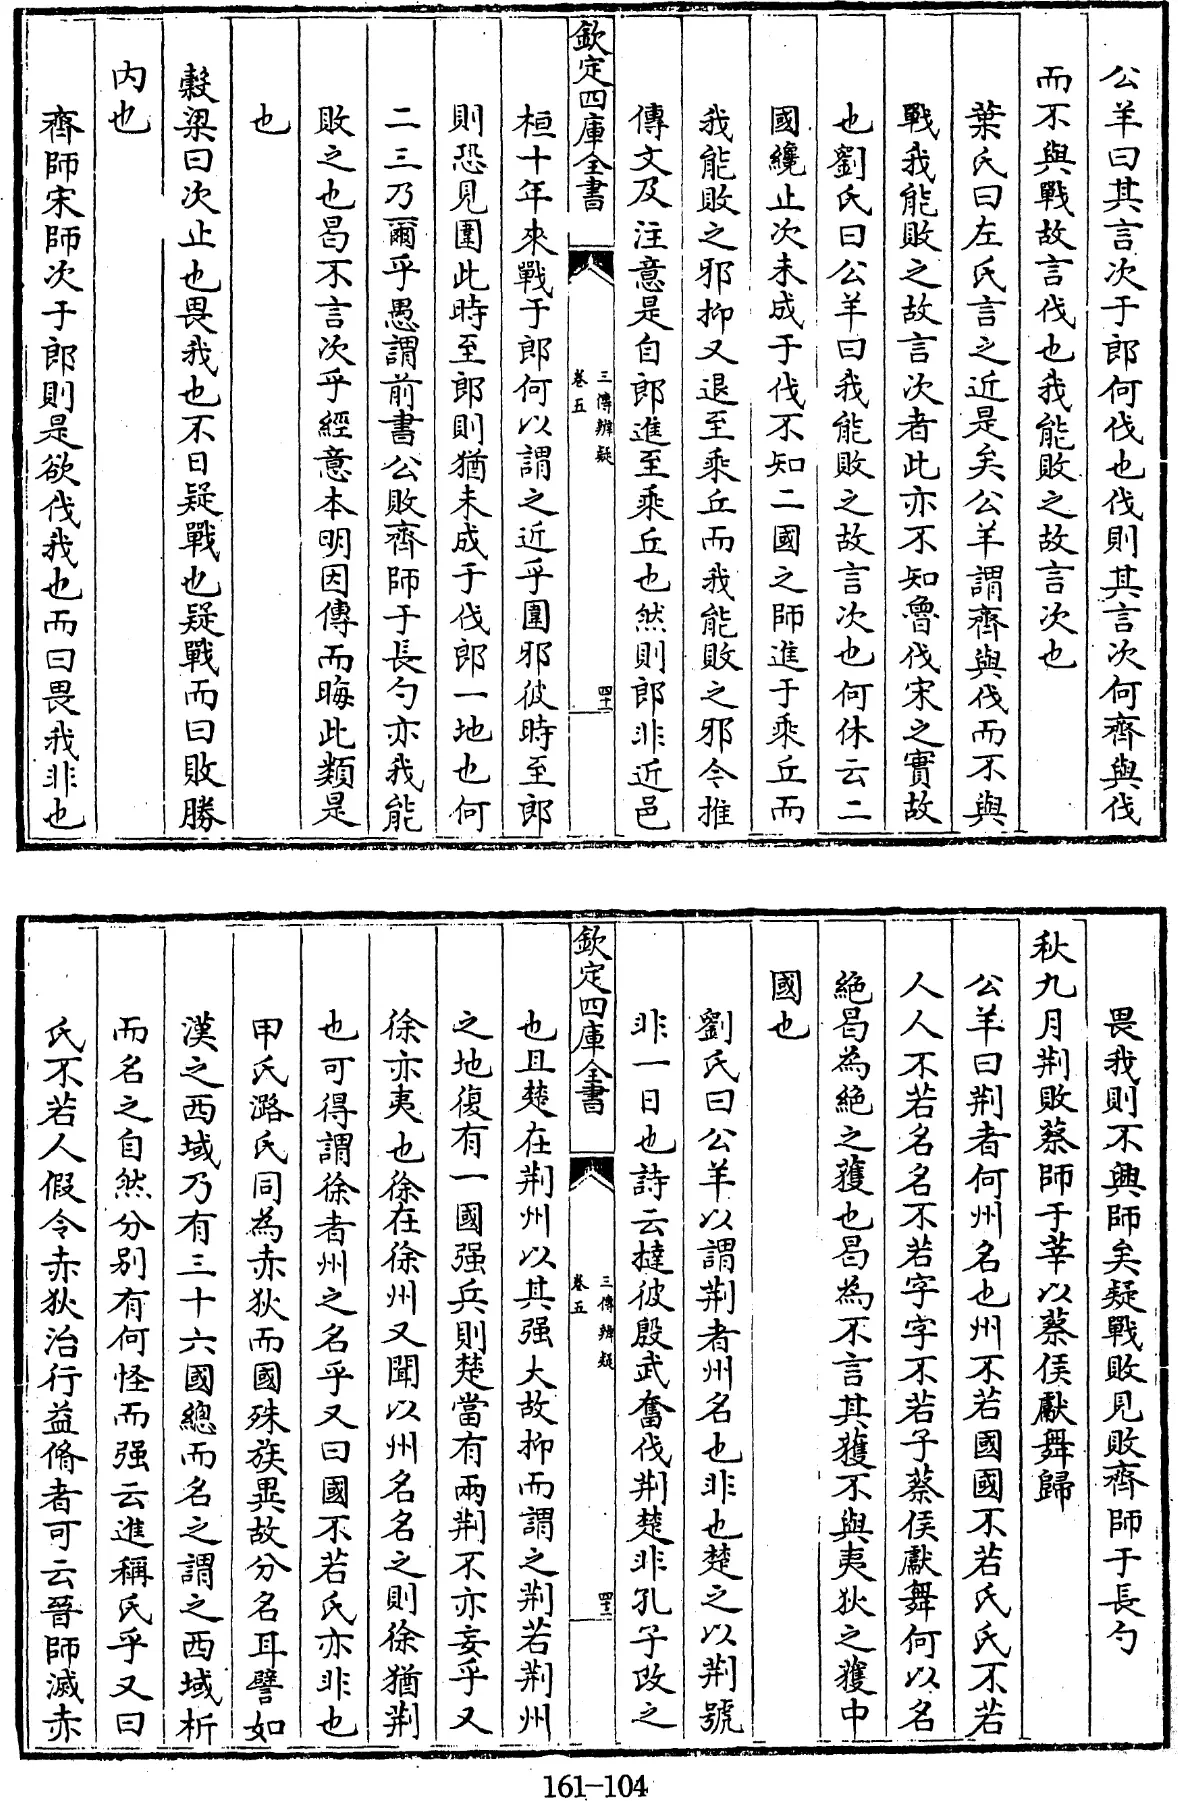 公羊曰其言次于郎何伐也伐則其言次何齊與伐
而不與戰故言伐也我能敗之故言次也
葉氏曰左氏言之近是矣公羊謂齊與伐而不與
戰我能敗之故言次者此亦不知魯伐宋之實故
也劉氏曰公羊曰我能敗之故言次也何休云二
國纔止次未成于伐不知二國之師進于乘丘而
我能敗之邪抑又退至乘丘而我能敗之邪令推
傳文及注意是自郎進至乘丘也然則郎非近邑
欽定四庫全書
三傳辨疑
卷五
四十一
桓十年來戰于郎何以謂之近乎圍邪彼時至郎
則恐見圍此時至郎則猶未成于伐郎一地也何
二三乃爾乎愚謂前書公敗齊師于長勺亦我能
敗之也曷不言次乎經意本明因傳而晦此類是
也
榖梁曰次止也畏我也不日疑戰也疑戰而曰敗勝
内也
齊師宋師次于郎則是欲伐我也而曰畏我非也
畏我則不興師矣疑戰敗見敗齊師于長勺
秋九月荆敗蔡師于莘以蔡侯獻舞歸
公羊曰荆者何州名也州不若國國不若氏氏不若
人人不若名名不若字字不若子蔡侯獻舞何以名
絶曷為絶之獲也曷為不言其獲不與夷狄之獲中
國也
劉氏曰公羊以謂荆者州名也非也楚之以荆號
非一日也詩云撻彼殷武奮伐荆楚非孔子改之
欽定四庫全書
三傳辨疑
卷五
四十二
也且楚在荆州以其强大故抑而謂之荆若荆州
之地復有一國强兵則楚當有兩荆不亦妄乎又
徐亦夷也徐在徐州又聞以州名名之則徐猶荆
也可得謂徐者州之名乎又曰國不若氏亦非也
甲氏潞氏同為赤狄而國殊族異故分名耳譬如
漢之西域乃有三十六國總而名之謂之西域析
而名之自然分别有何怪而强云進稱氏乎又曰
氏不若人假令赤狄治行益脩者可云晉師滅赤
161-104